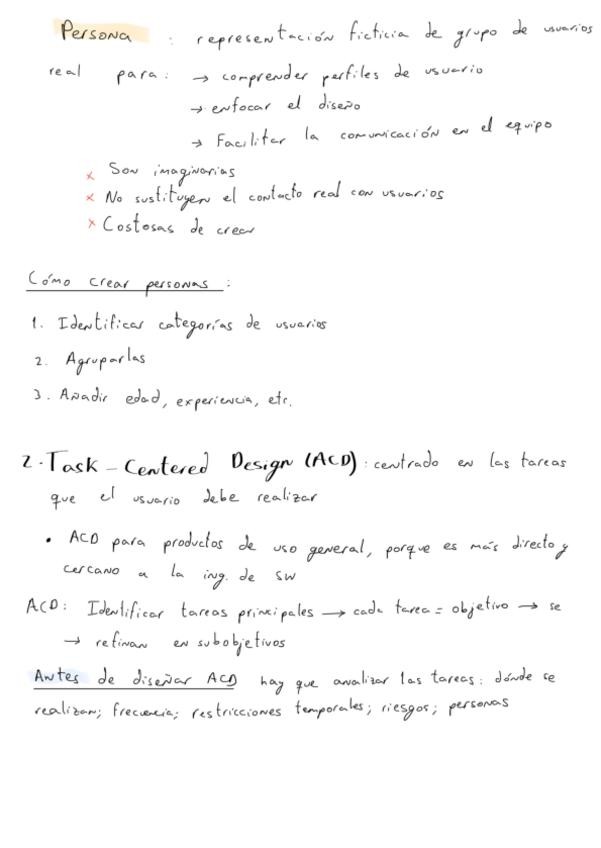 Persona : representación ficticia de grupo de usuarios
real para: → comprender perfiles de usuario
→ enfocar el diseño
→ Facilitar la comunicación en el equipo
x Son imaginarias
x No sustituyen el contacto real con usuarios
x Costosas de crear
Cómo crear personas :
1. Identificar categorías de usuarios
2. Agruparlas
3. Añadir edad, experiencia, etc.
2. Task - Centered Design (ACD): centrado en las tareas
que el usuario debe realizar
• ACD para productos de uso general, porque es más directo y
cercano a la ing. de SW
ACD: Identificar tareas principales → cada tarea = objetivo → se
→ refinan en subobjetivos
Antes de diseñar ACD hay que analizar las tareas: dónde se
realizan; frecuencia; restricciones temporales; riesgos; personas